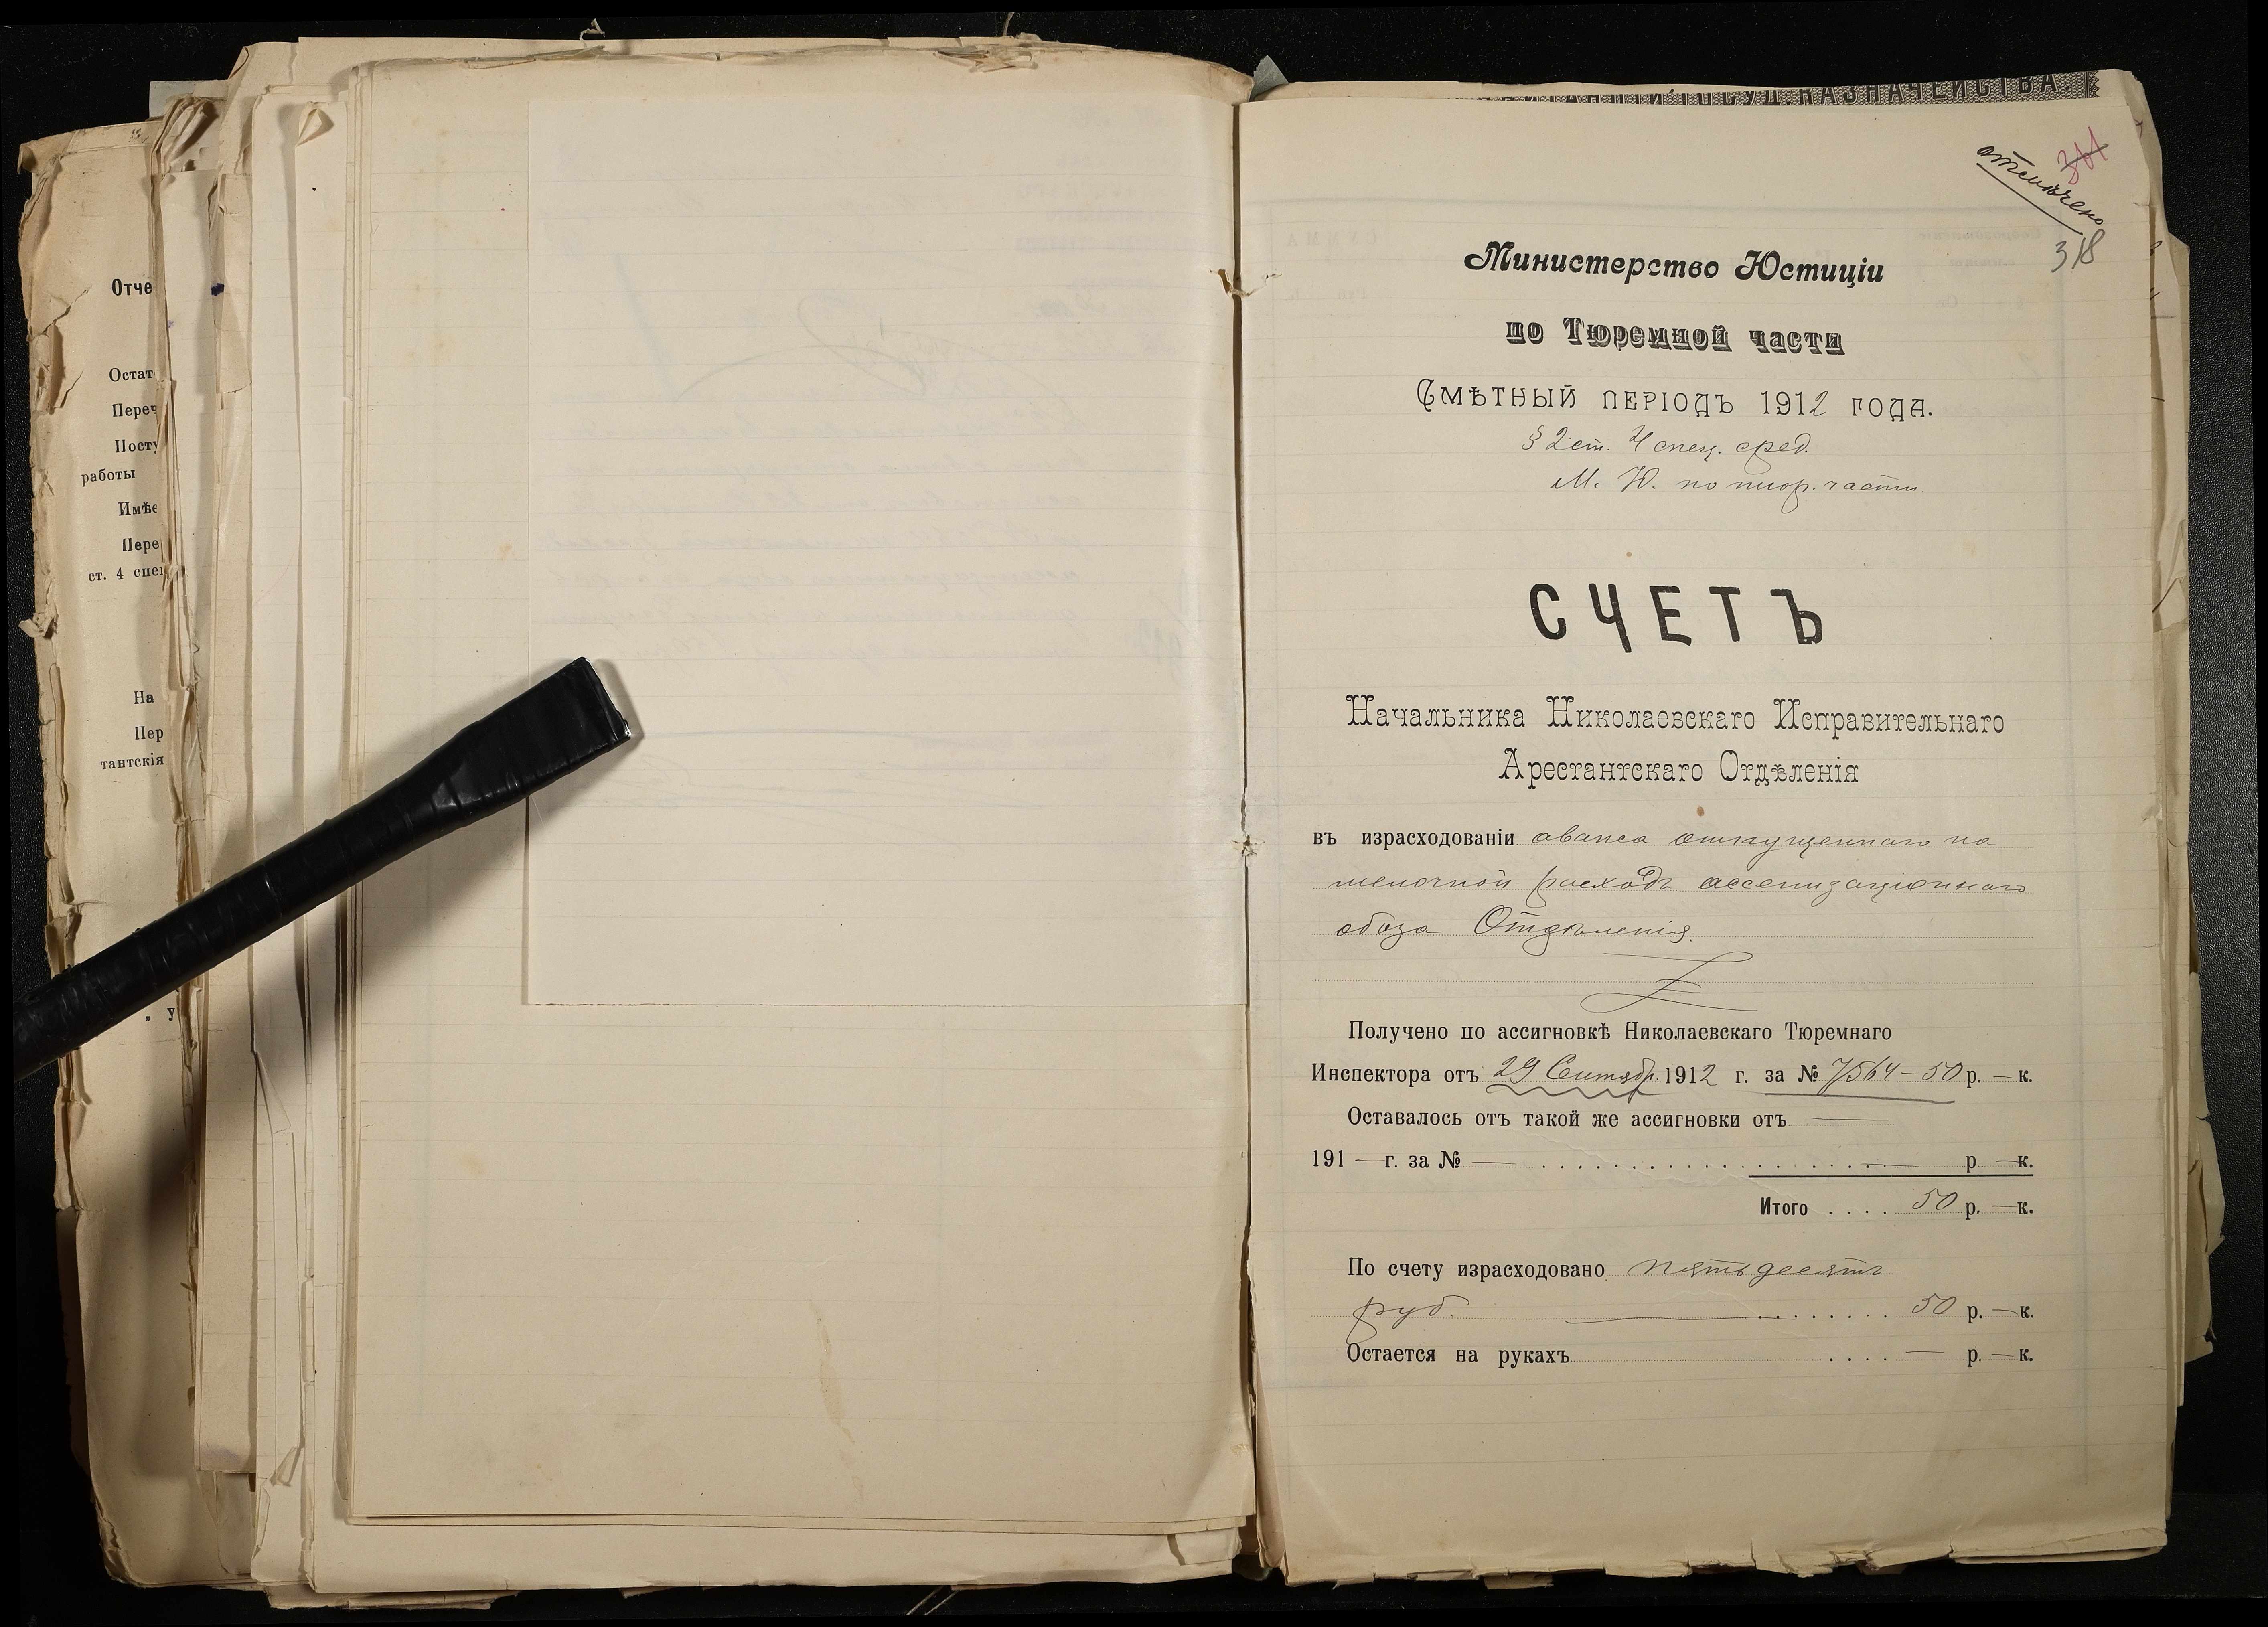 Отче
Остат
Переч
Посту
работы
Имѣе
Пере
ст. 4 спец
На
Пер
тантскія
„ У
ГОСУД. КАЗНАЧЕЙСТВА.
отмѣчено
318
Министерство Юстиціи
по Тюремной части
Смѣтный періодъ 1912 года.
§ 2 ст. 4 спец. сред.
М. Ю. по тюр. части.
СЧЕТЪ
Начальника Николаевскаго Исправительнаго
Арестантскаго Отдѣленія
въ израсходованіи аванса отпущеннаго на
мелочной расходъ ассенизаціоннаго
обоза Отдѣленія.
Получено по ассигновкѣ Николаевскаго Тюремнаго
Инспектора отъ 29 Сентябр. 1912 г. за № 7564 – 50 р. — к.
Оставалось отъ такой же ассигновки отъ —
191 — г. за № — . . . . . . . . . . . . . . . . . . . . р — к.
Итого . . . . 50 р. — к.
По счету израсходовано пятьдесятъ
руб. — . . . . . . . . 50 р. — к.
Остается на рукахъ . . . . — р. — к.